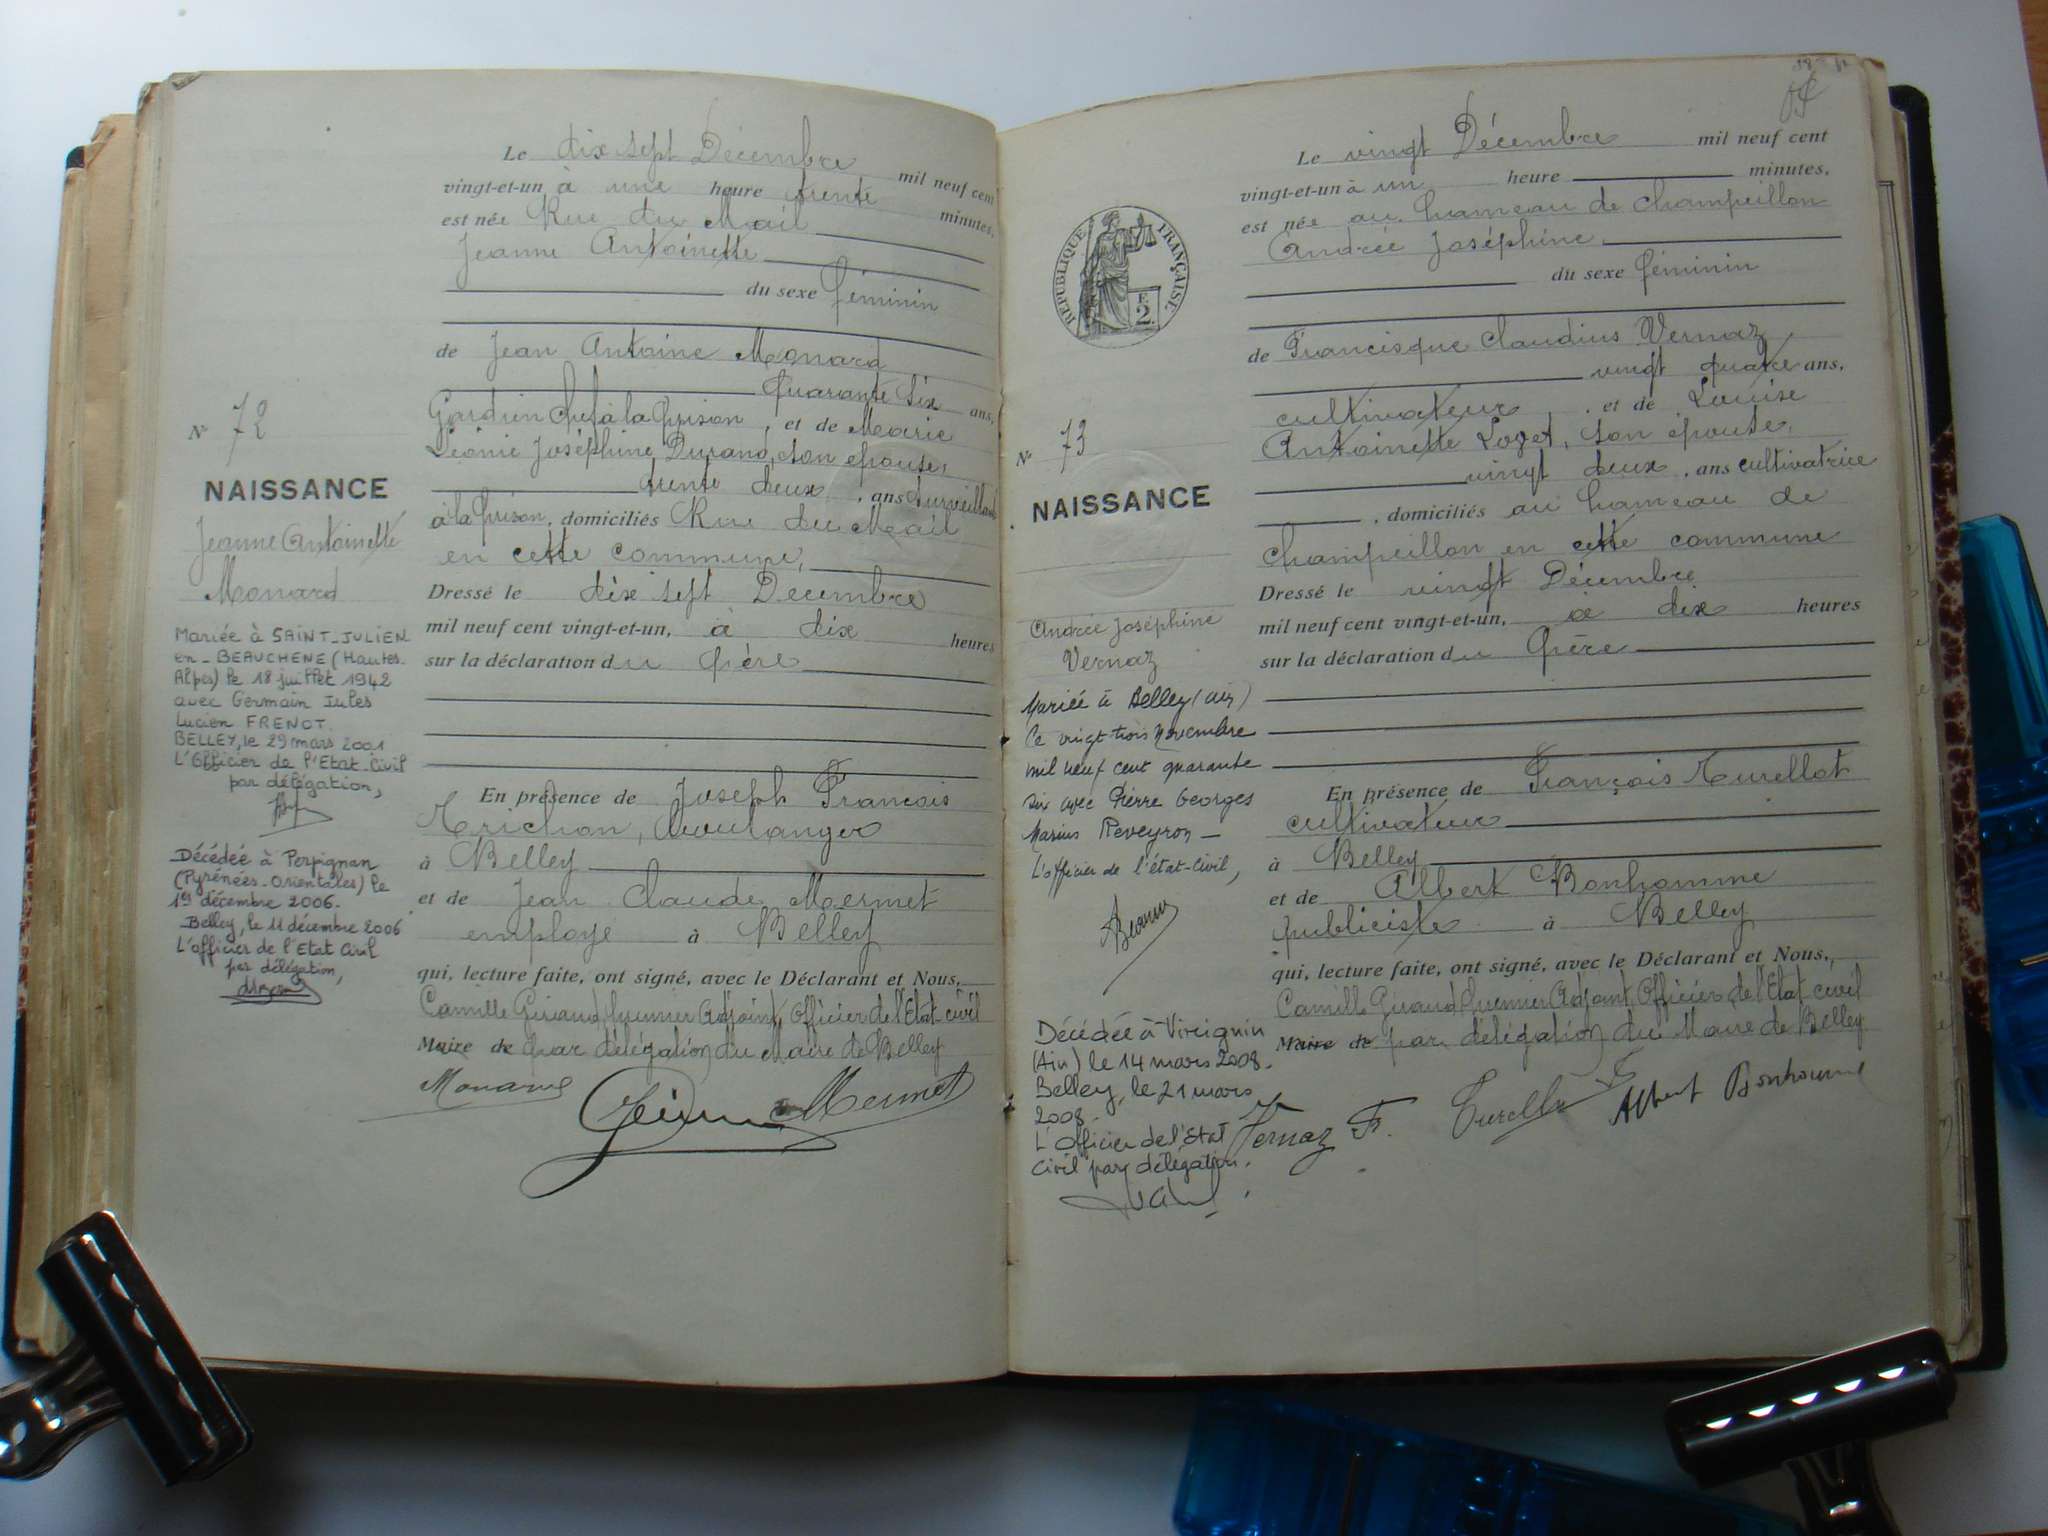 Le dix sept Décembre mil neuf cent
vingt-et-un à une heure trente minutes,
est née Rue du Mail
Jeanne Antoinette
du sexe féminin
de Jean Antoine Monard
quarante six ans,
Gardien Chef à la Prison, et de Marie
Léonie Joséphine Durand, son épouse,
trente deux, ans surveillante
à la Prison, domiciliés Rue du Mail
en cette commune,
Dressé le dix sept Décembre
mil neuf cent vingt-et-un, à dix heures
sur la déclaration du Père
En présence de Joseph François
Trichon, Boulanger
à Belley
et de Jean Claude Mermet
employé à Belley
qui, lecture faite, ont signé, avec le Déclarant et Nous,
Camille Giraud premier Adjoint, Officier de l'Etat-civil
Maire de par délégation du Maire de Belley
Mermet
N° 72
NAISSANCE
Jeanne Antoinette
Monard
Mariée à SAINT-JULIEN
en-BEAUCHENE (Hautes-
Alpes) le 18 juillet 1942
avec Germain Jules
Lucien FRENOT.
BELLEY, le 29 mars 2001
L'Officier de l'Etat-Civil
par délégation,
Décédée à Perpignan
(Pyrénées-Orientales) le
1er décembre 2006.
Belley, le 11 décembre 2006
L'officier de l'Etat Civil
par délégation,
Le vingt Décembre mil neuf cent
vingt-et-un à un heure minutes,
est née au hameau de Champeillon
Andrée Joséphine
du sexe féminin
de Francisque Claudius Vernaz
vingt quatre ans,
cultivateur, et de Louise
Antoinette Loget, son épouse,
vingt deux, ans cultivatrice
, domiciliés au hameau de
Champeillon en cette commune
Dressé le vingt Décembre
mil neuf cent vingt-et-un, à dix heures
sur la déclaration du Père
En présence de François Turellot
cultivateur
à Belley
et de Albert Bonhomme
publiciste à Belley
qui, lecture faite, ont signé, avec le Déclarant et Nous,
Camille Giraud premier Adjoint, Officier de l'Etat-civil
Maire de par délégation du Maire de Belley
Vernaz F.
Albert Bonhomme
REPUBLIQUE FRANÇAISE
F.
2.
N° 73
NAISSANCE
Andrée Joséphine
Vernaz
Mariée à Belley (Ain)
le vingt-trois Novembre
mil neuf cent quarante
six avec Pierre Georges
Marius Reveyron —
L'officier de l'état-civil,
Décédée à Virignin
(Ain) le 14 mars 2008.
Belley, le 21 mars
2008.
L'Officier de l'Etat
Civil par délégation.